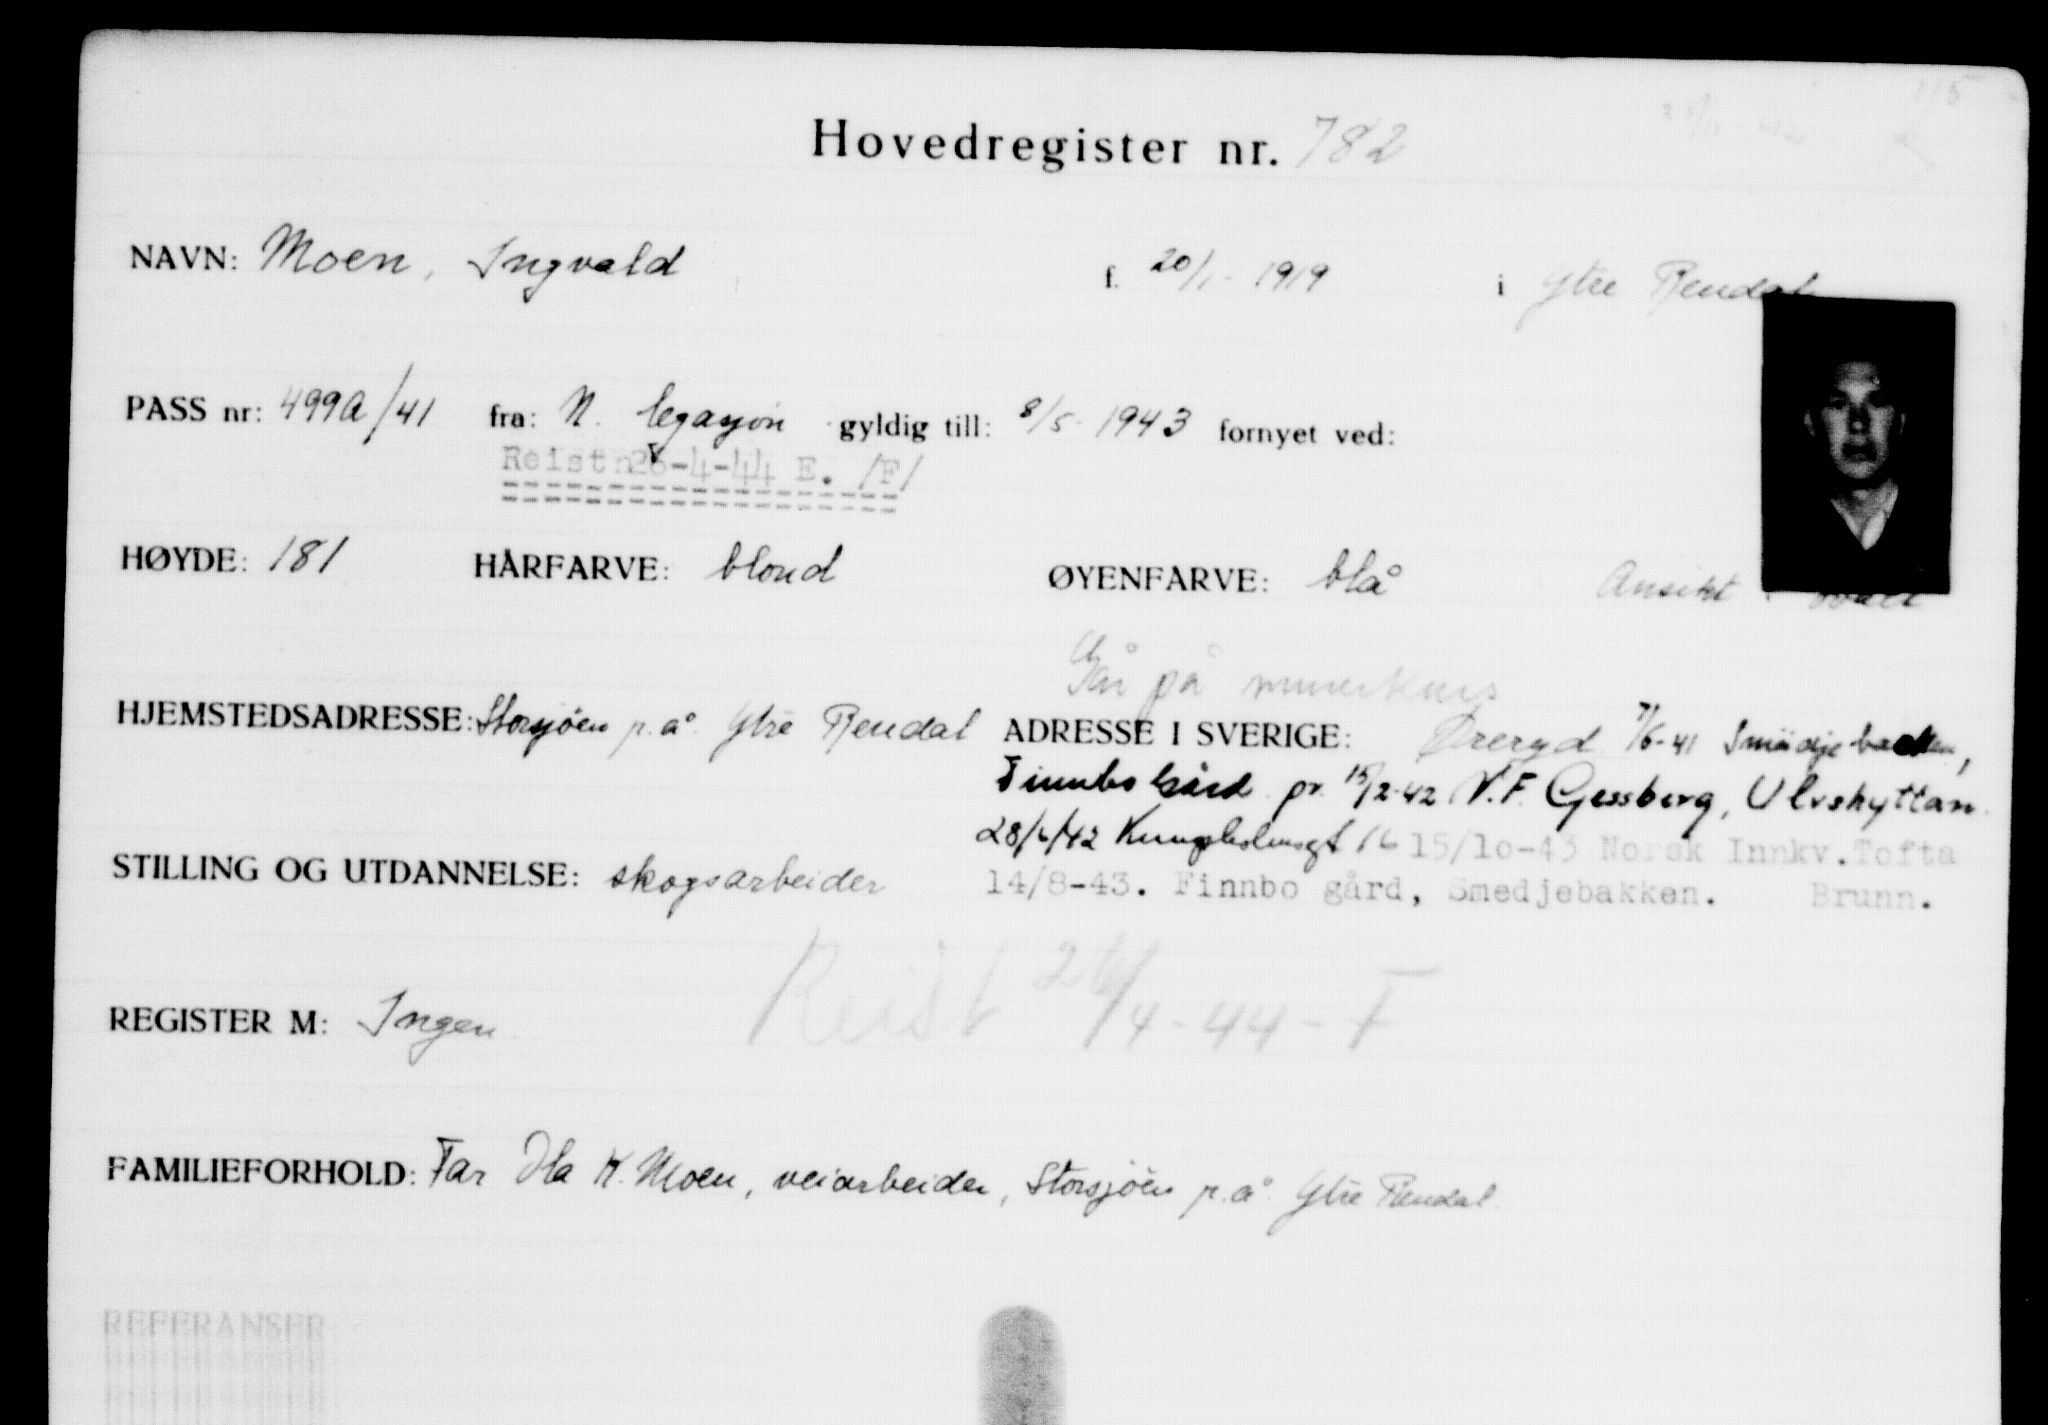 Hovedregister nr. 782
NAVN: Moen, Ingvald f. 20/1-1919 i Ytre Rendal
PASS nr: 499A/41 fra: N. legasjon gyldig till: 8/5-1943 fornyet ved:
Reist 26-4-44 E. /F/
HØYDE: 181 HÅRFARVE: blond ØYENFARVE: blå Ansikt ovalt
Går på
HJEMSTEDSADRESSE: Storsjöen p.å. Ytre Rendal ADRESSE I SVERIGE: Øreryd 7/6-41 Smådjebacken,
Finnbo Gård pr. 15/2-42 V.F. Gessberg, Ulvshyttan.
28/6/42 Kungsholmsgt 16 15/10-43 Norsk Innkv. Tofta
STILLING OG UTDANNELSE: skogsarbeider 14/8-43. Finnbo gård, Smedjebakken. Brunn.
Reist 26/4-44-F
REGISTER M: Ingen
FAMILIEFORHOLD: Far Ola K. Moen, veiarbeider, Storsjöen p.å. Ytre Rendal.
REFERANSER